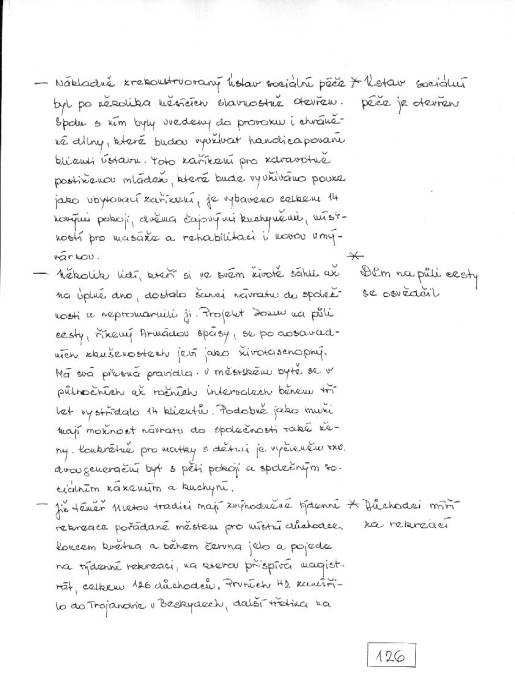 — Nákladně zrekonstruovaný Ústav sociální péče
byl po několika měsících slavnostně otevřen.
Spolu s ním byly uvedeny do provozu i chráně-
né dílny, které budou využívat handicapovaní
klienti ústavu. Toto zařízení pro zdravotně
postiženou mládež, které bude využíváno pouze
jako ubytovací zařízení, je vybaveno celkem 14
novými pokoji, dvěma čajovými kuchyněmi, míst-
ností pro masáže a rehabilitaci i novou umý-
várnou.
— Několik lidí, kteří si ve svém životě sáhli až
na úplné dno, dostalo šanci návratu do společ-
nosti a nepromarnili ji. Projekt Domu na půli
cesty, řízený Armádou spásy, se po dosavad-
ních zkušenostech jeví jako životaschopný.
Má svá přesná pravidla. V městském bytě se v
půlročních až ročních intervalech během tří
let vystřídalo 14 klientů. Podobně jako muži
mají možnost návratu do společnosti také že-
ny. Konkrétně pro matky s dětmi je vyčleněn tzv.
dvougenerační byt s pěti pokoji a společným so-
ciálním zázemím a kuchyní.
— Již téměř 11letou tradici mají zvýhodněné týdenní
rekreace pořádané městem pro místní důchodce.
Koncem května a během června jelo a pojede
na týdenní rekreaci, na kterou přispívá magist-
rát, celkem 126 důchodců. Prvních 42 zamíři-
lo do Trojanovic v Beskydech, další třetina na
* Ústav sociální
péče je otevřen
*
Dům na půli cesty
se osvědčil
* Důchodci míří
za rekreací
126